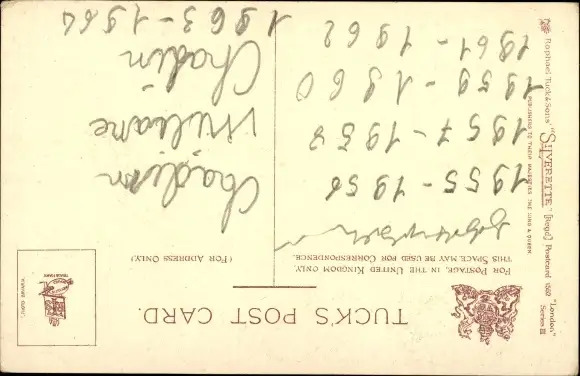 TUCK'S POST CARD.
FOR POSTAGE, IN THE UNITED KINGDOM ONLY,
THIS SPACE MAY BE USED FOR CORRESPONDENCE.
(FOR ADDRESS ONLY.)
1955 - 1956
1957 - 1958
1959 - 1960
1961 - 1962
Miliane
Chadin
1963 - 1964
Raphael Tuck & Sons' "SILVERETTE" [Regd.] Postcard
"London"
Series III
PUBLISHERS TO THEIR MAJESTIES THE KING & QUEEN.